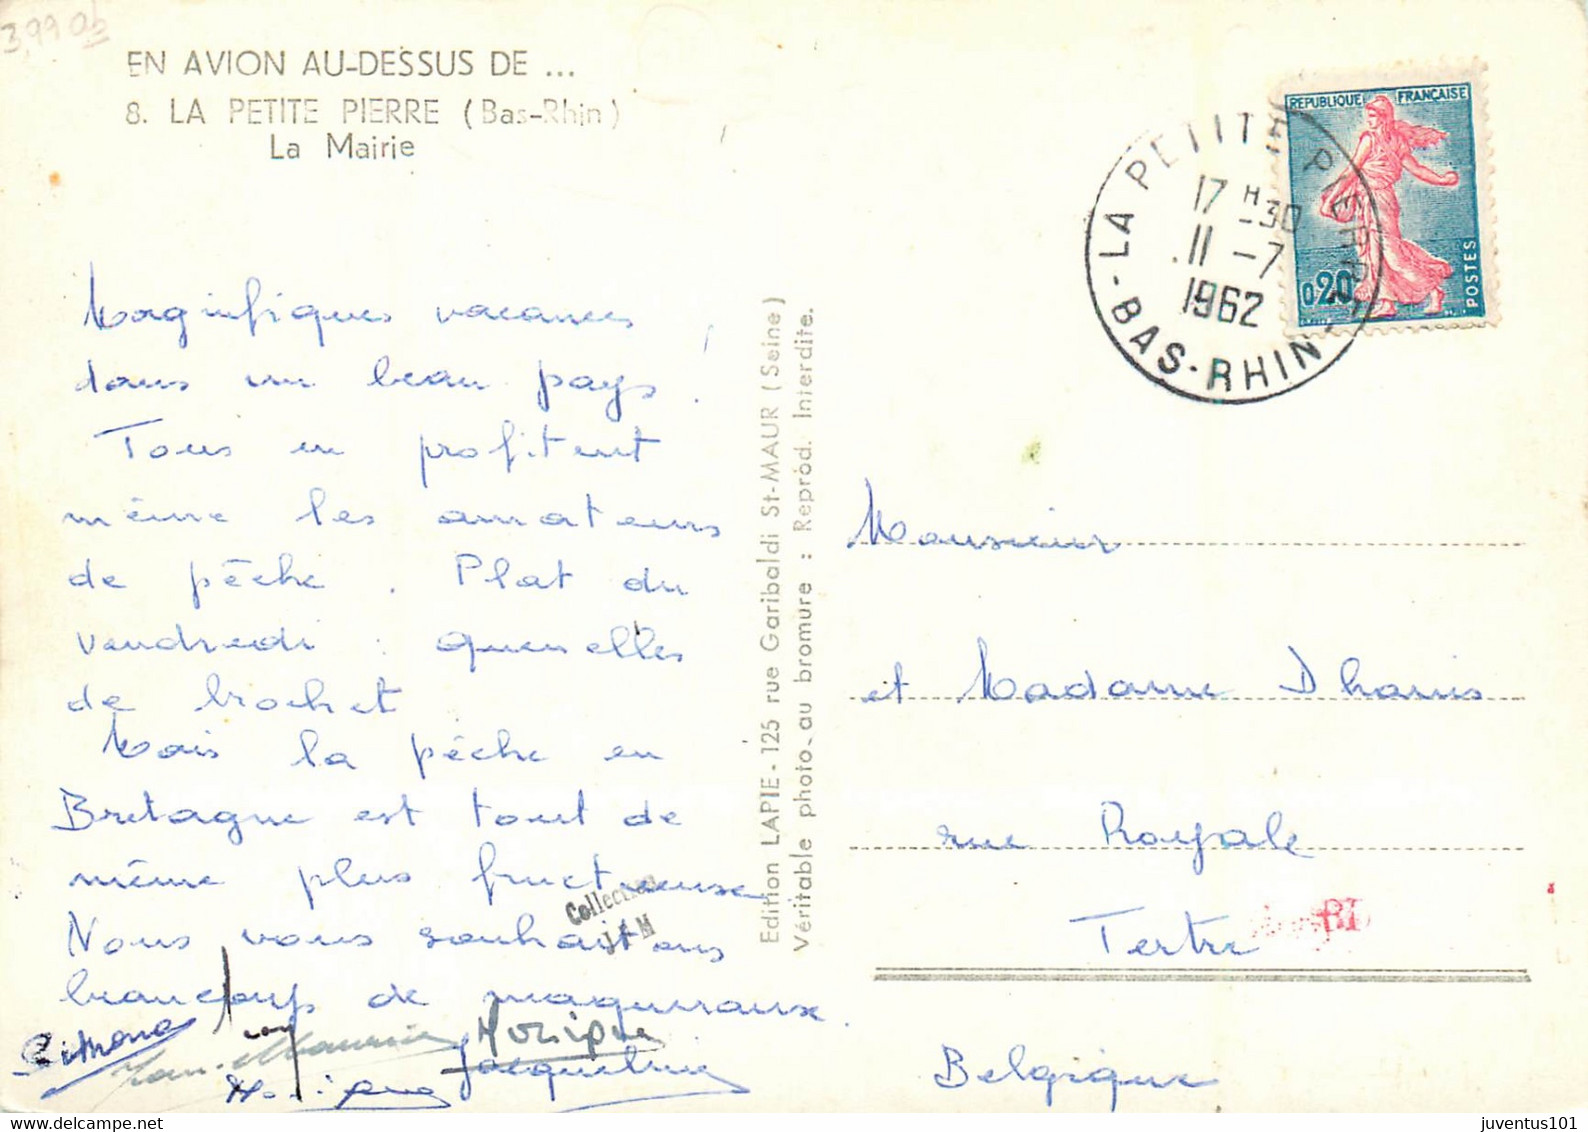 3,99
EN AVION AU-DESSUS DE ...
8. LA PETITE PIERRE (Bas-Rhin)
La Mairie
Magnifiques vacances
dans un beau pays !
Tous en profitent
même les amateurs
de pêche . Plat du
vendredi : quenelles
de brochet
Mais la pêche en
Bretagne est tout de
même plus fructueuse
Nous vous souhaitons
beaucoup de maquereaux .
Simone
Monique
Jacqueline
Collection
J & M
Edition LAPIE - 125 rue Garibaldi St-MAUR (Seine)
Véritable photo au bromure : Reprod. Interdite.
LA PETITE PIERRE
17 H 30
11 -7
1962
- BAS-RHIN -
REPUBLIQUE FRANÇAISE
0,20
POSTES
Monsieur
et Madame Dhanis
rue Royale
Tertre
Belgique
juventus101